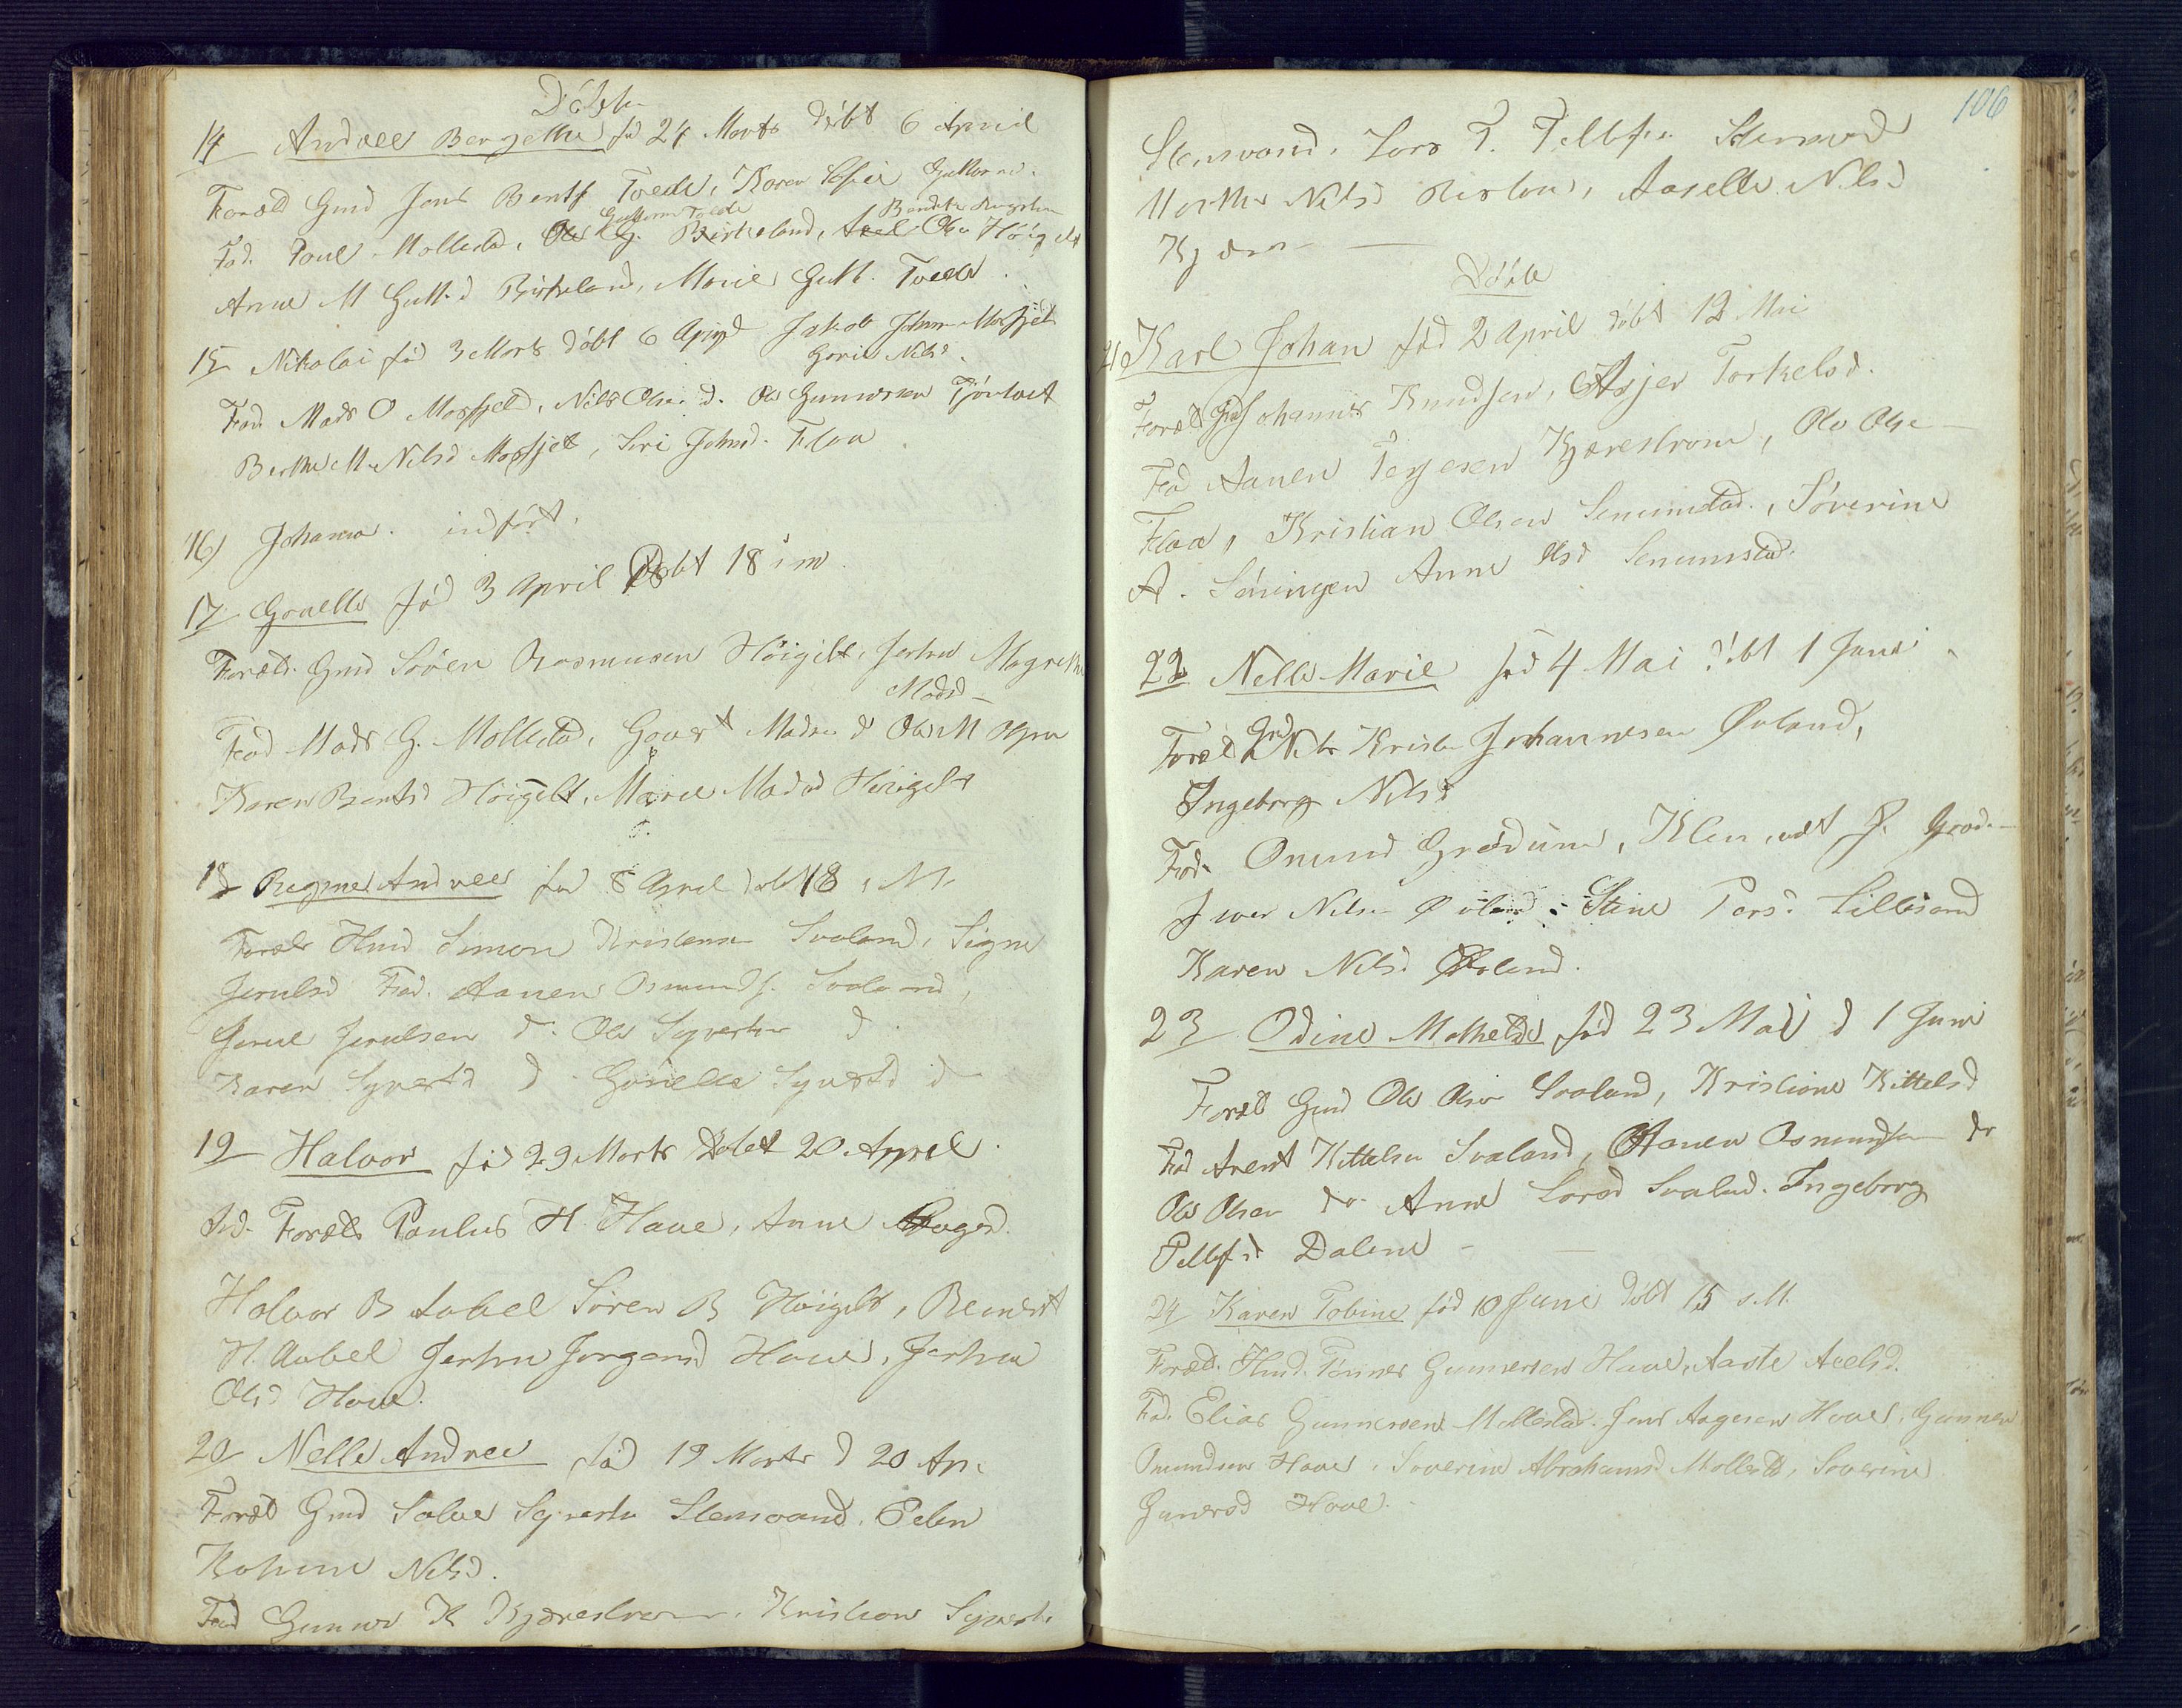 Döbte
14 Andrea Bergethe fød 24 Marts döbt 6 April
Foræld Gmd Jens Bentf Tvede, Karen Sofie Guttormd.
Guttorm Tvede Bendix
Fad. Poul Mollestad, Ole G. Birkeland, Axel Olsen Höigilt
Anne M Gutt.d Birkeland, Marie Gutt. Tvede.
15 Nikolai född 3 Marts döbt 6 April Jakob Johnsen Mosfjel
Gorine Nilsd.
Fad. Mads O Mosfjeld, Nils Olsen d. Ole Gunvorsen Tjönloet
Berthe M. Nilsd Mosfjel, Siri Johnsd. Flaa
16) Johanna. indfört.
17 Gonelle fød 3 April Döbt 18 i m.
Foræld. Gmd Sören Rasmusen Höigilt, Jertru Magrethe
Madsd
Fad Mads G. Mollestad, Govert Madsen d Ole M Olsen
Karen Bentsd Höigilt, Marie Madsd Höigilt
18 Ragne Andrea fød 8 April döbt 18 s. M.
Foræld Hmd Simon Kristensen Svaland, Signe
Jerulsd Fad. Aanen Osmundsf. Svaland,
Jerul Jerulsen d. Ole Syvertsen d
Karen Syvertsd d Gonelle Syvertsd d
19 Halvor född 29 Marts Döbt 20 April.
Foræld Paulus H. Haue, Anne Aagesd.
Halvor B Aabel Sören B Höigilt, Berent
H. Aabel Jertru Jorgensd Haue, Jertru
Olsd Haue.
20 Nelle Andrea född 19 Marts d 20 Ap.
Foræld Gmd Salve Syvertsen Stensvand, Elen
Kathrine Nilsd.
Fad Gunner K Kjærestrøm. Kristian Syverts.
106
Stensvand, Lars T. Tellefsen Stensvand
Marthe Nilsd Risløu, Aaselle Nilsd
Kjær
Döbte
21 Karl Johan född 2 April döbt 12 Mai
Foræld Gmd Johannes Knudsen, Asjer Torkelsd.
Fad Aanen Terjesen Kjærestrøm, Ole Olse
Flaa, Kristian Olsen Senumstad, Söverine
A. Söningen Anne Olsd Senumstad.
22 Nelle Marie född 4 Mai döbt 1 Juni
Foræld Gmd Nils Kristen Johannesen Øvland,
Ingeborg Nilsd
Fad. Omund Grödum, J. Gröd.
Iver Nilsen Øvland, Stine Pers. Lillesand
Karen Nilsd Øvland.
23 Odine Mathelde född 23 Mai d 1 Juni
Foræld Gmd Ole Olsen Svaland, Kristione Kittelsd
Fad Arent Kittelsen Svaland, Aanen Osmundsen do
Ole Olsen do. Anne Larsd Svaland. Ingeborg
Tellefsd Dalene
24 Karen Tobine född 10 Juni döbt 15 s. M.
Foræld. Hmd. Tönnes Gunnersen Haue, Aaste Axelsd.
Fad. Elias Gunnersen Mollestad. Jens Aagesen Haue, Gunner
Omundsen Haue, Soverine Abrahamsd Mollestd, Soverine
Gunersd Haue.